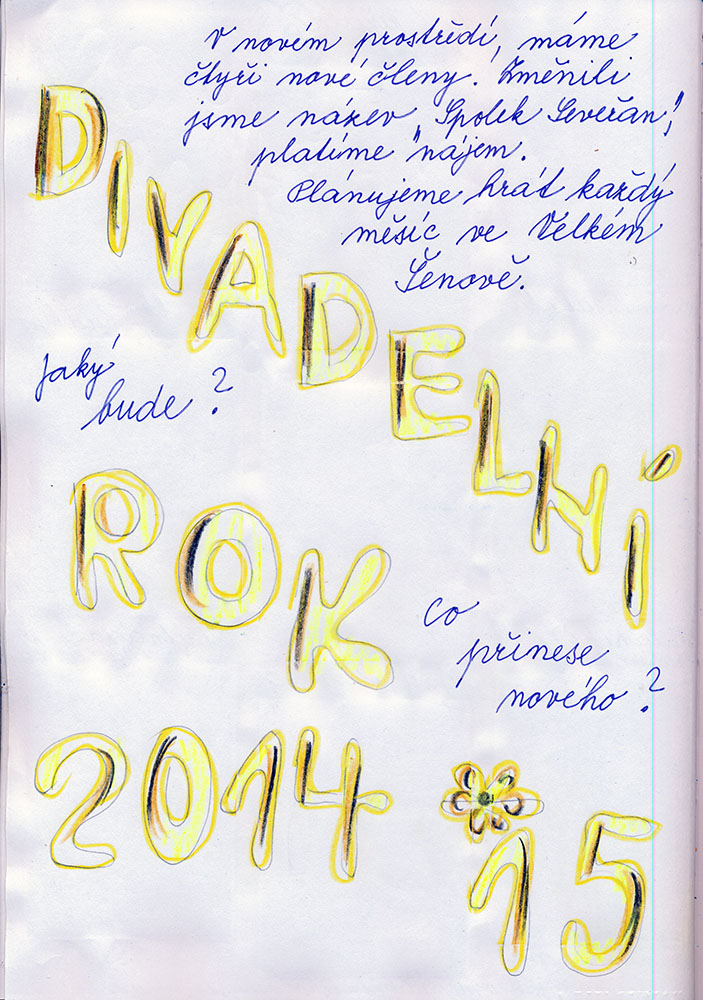 V novém prostředí, máme
čtyři nové členy. Změnili
jsme název „Spolek Severan",
platíme nájem.
Plánujeme hrát každý
měsíc ve Velkém
Šenově.
DIVADELNÍ
Jaký
bude?
ROK
Co
přinese
nového?
2014
15